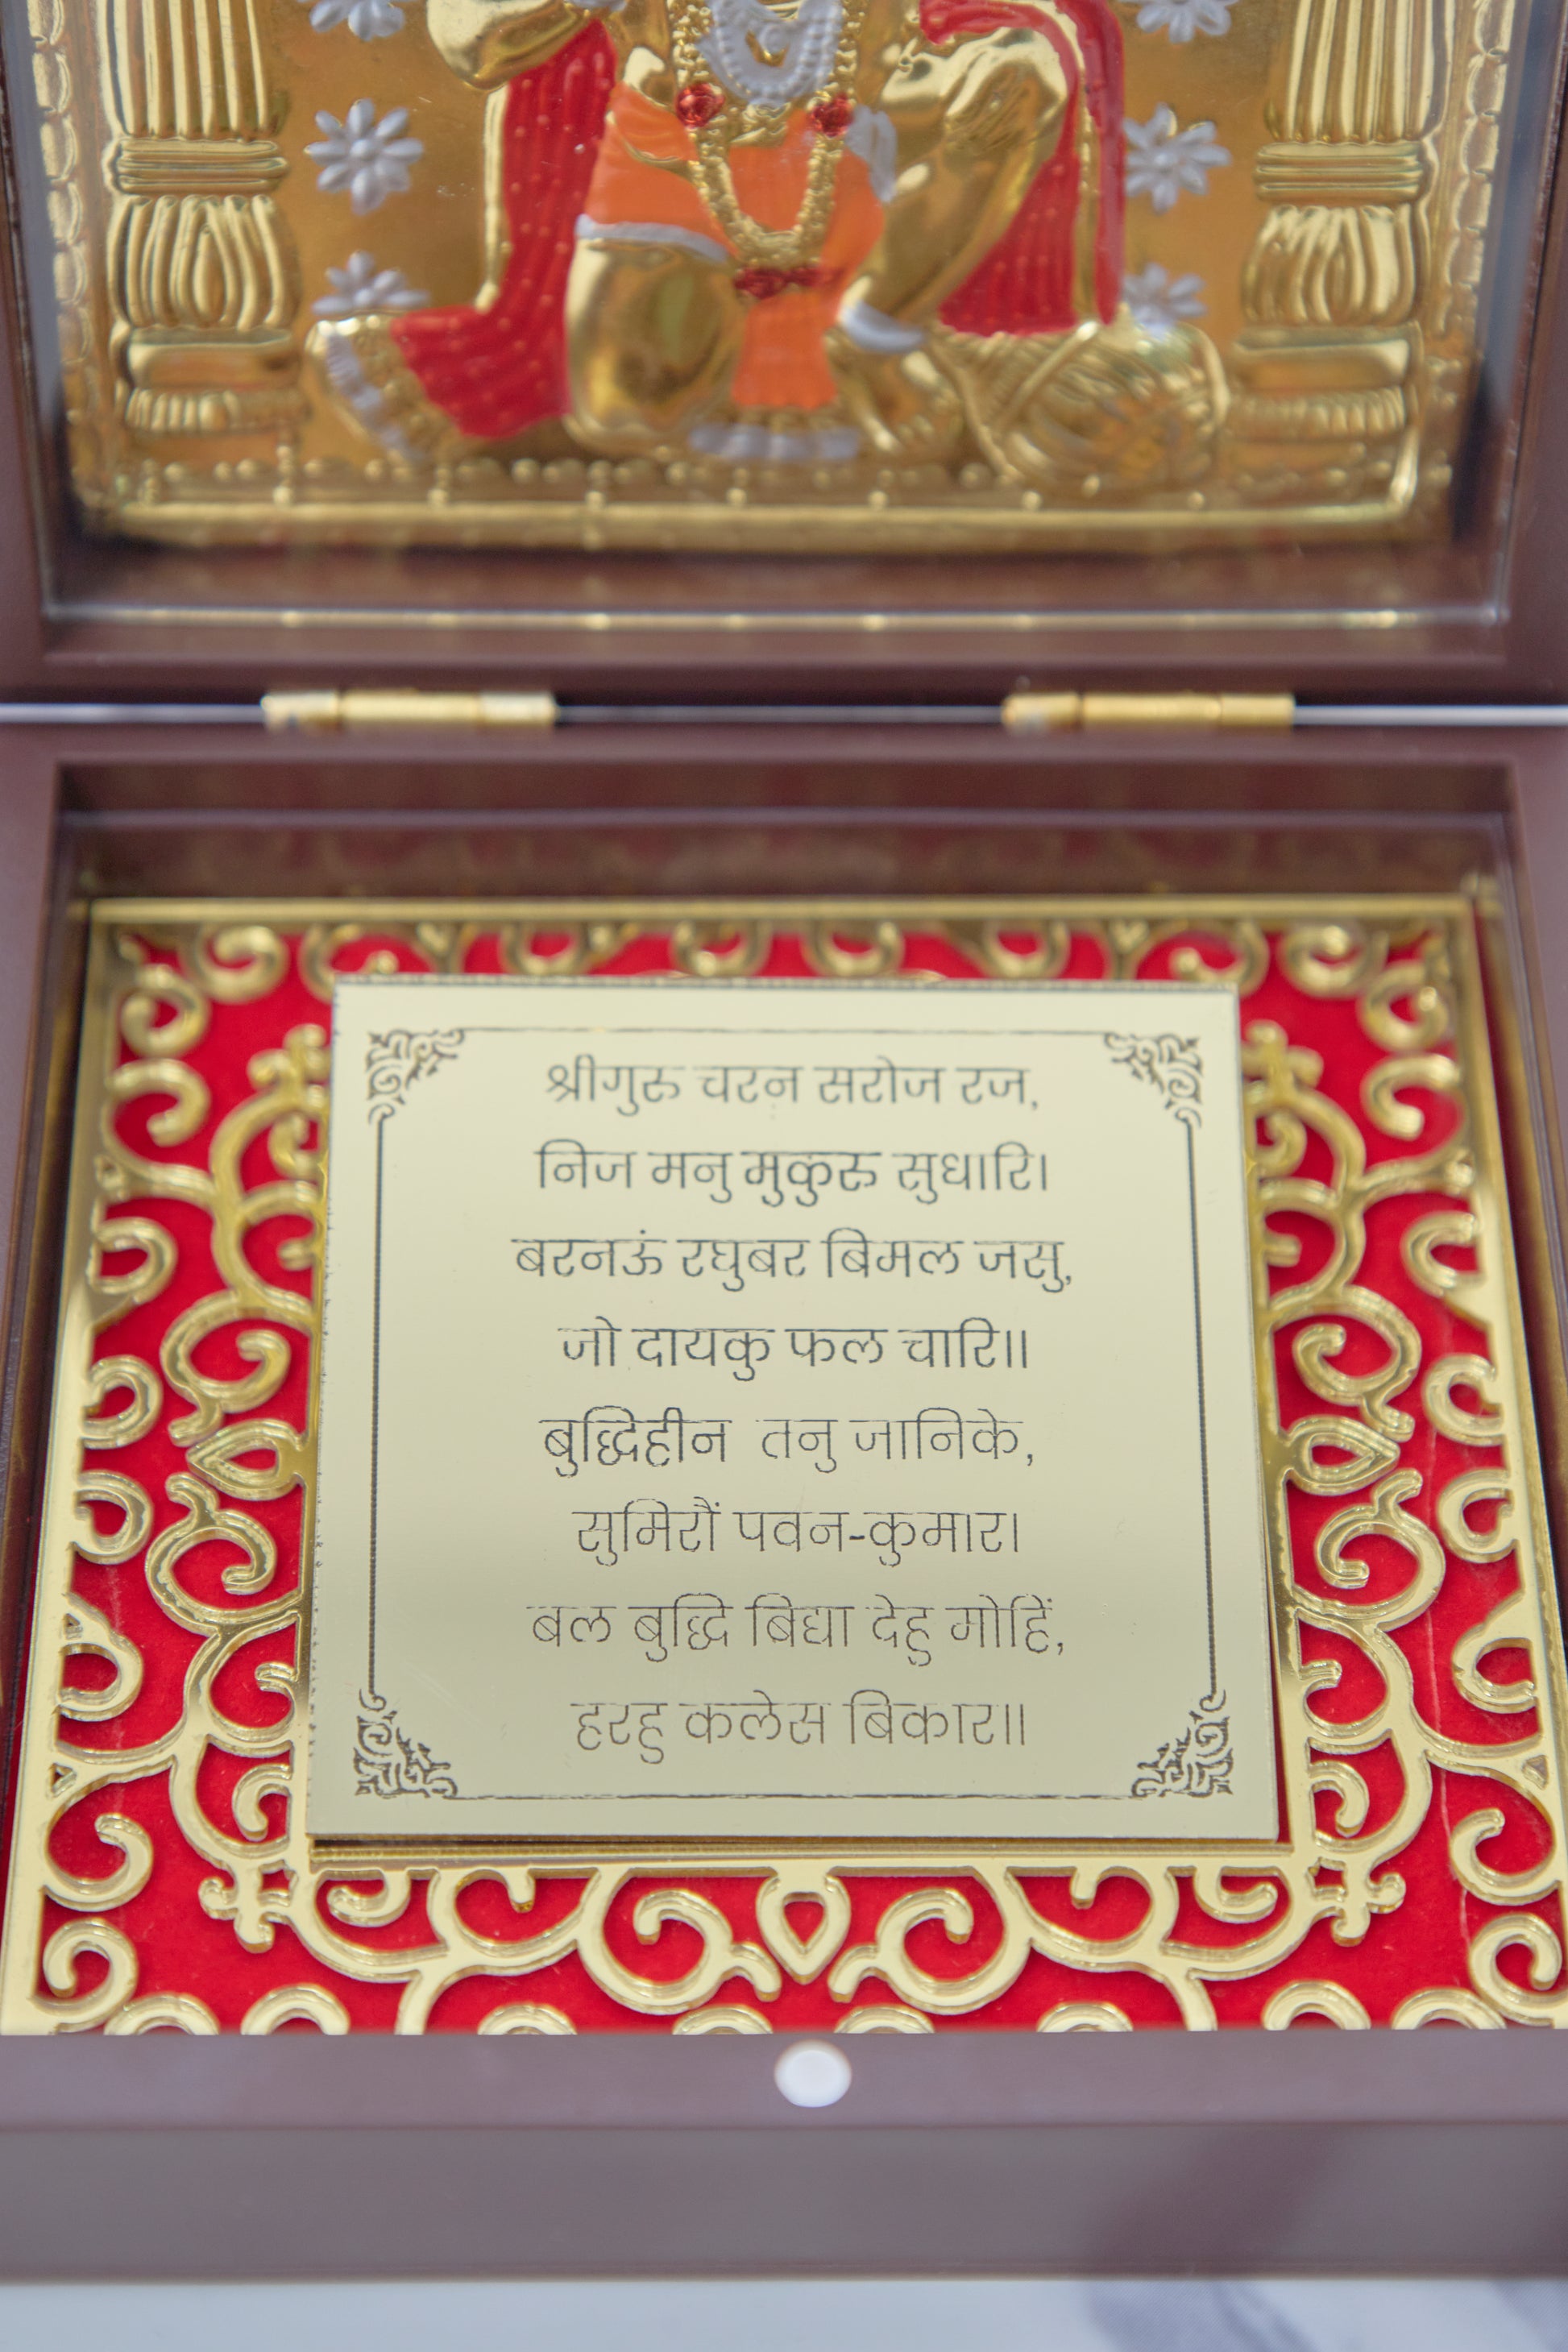 श्रीगुरु चरन सरोज रज,
निज मनु मुकुरु सुधारि।
बरनऊं रघुबर बिमल जसु,
जो दायकु फल चारि॥
बुद्धिहीन तनु जानिके,
सुमिरौं पवन-कुमार।
बल बुद्धि बिद्या देहु मोहिं,
हरहु कलेस बिकार॥